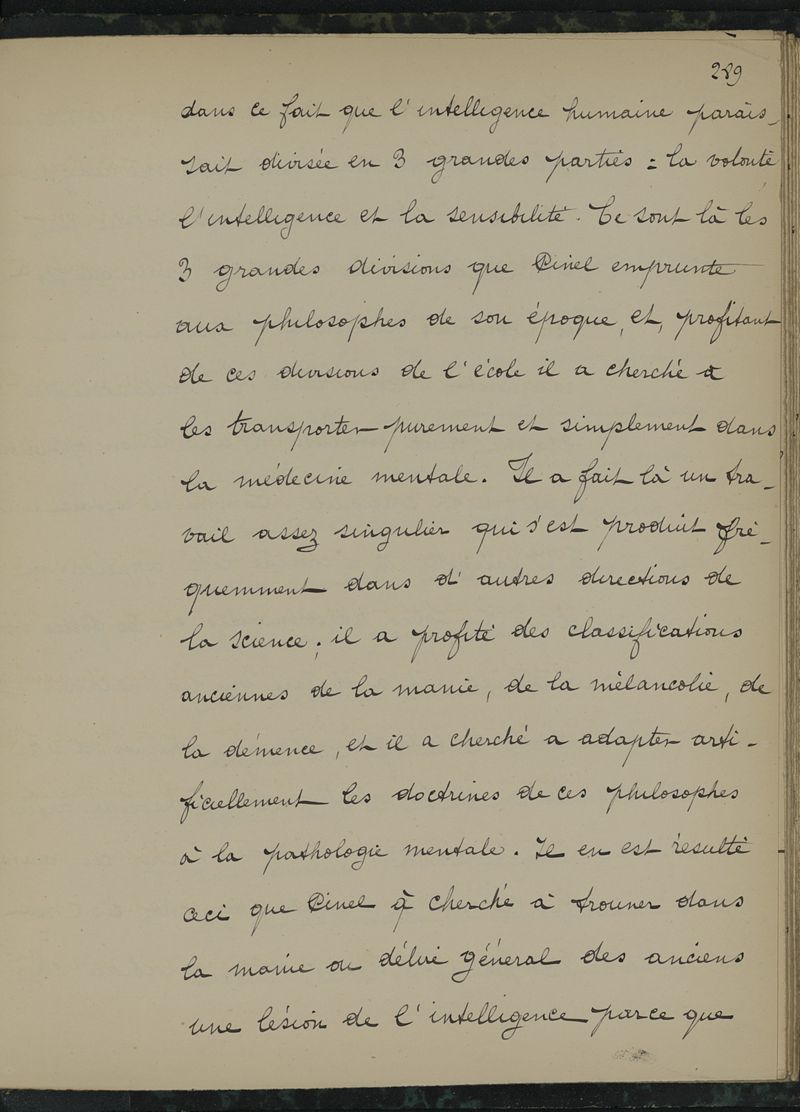 289
dans ce fait que l'intelligence humaine parais-
sait divisée en 3 grandes parties : la volonté
l'intelligence et la sensibilité. Ce sont là les
3 grandes divisions que Pinel emprunte
aux philosophes de son époque, et, profitant
de ces divisions de l'école il a cherché à
les transporter purement et simplement dans
la médecine mentale. Il a fait là un tra-
vail assez singulier qui s'est produit fré-
quemment dans d'autres directions de
la science ; il a profité des classifications
anciennes de la manie, de la mélancolie, de
la démence, et il a cherché a adapter arti-
ficiellement les doctrines de ces philosophes
à la pathologie mentale. Il en est résulté
ceci que Pinel a cherché à trouver dans
la manie ou délire général des anciens
une lésion de l'intelligence parce que